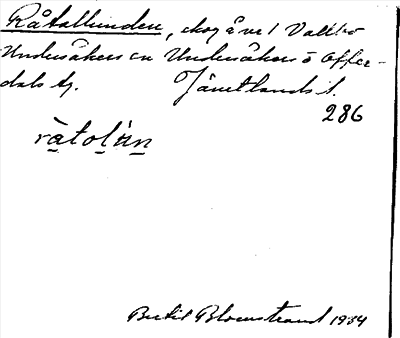 Råtallunden, skog å nr 1 Vallbo
Undersåkers sn Undersåkers o Offer-
dals tg. Jämtlands l.
286
ràtolún
Bertil Blomstrand 1934